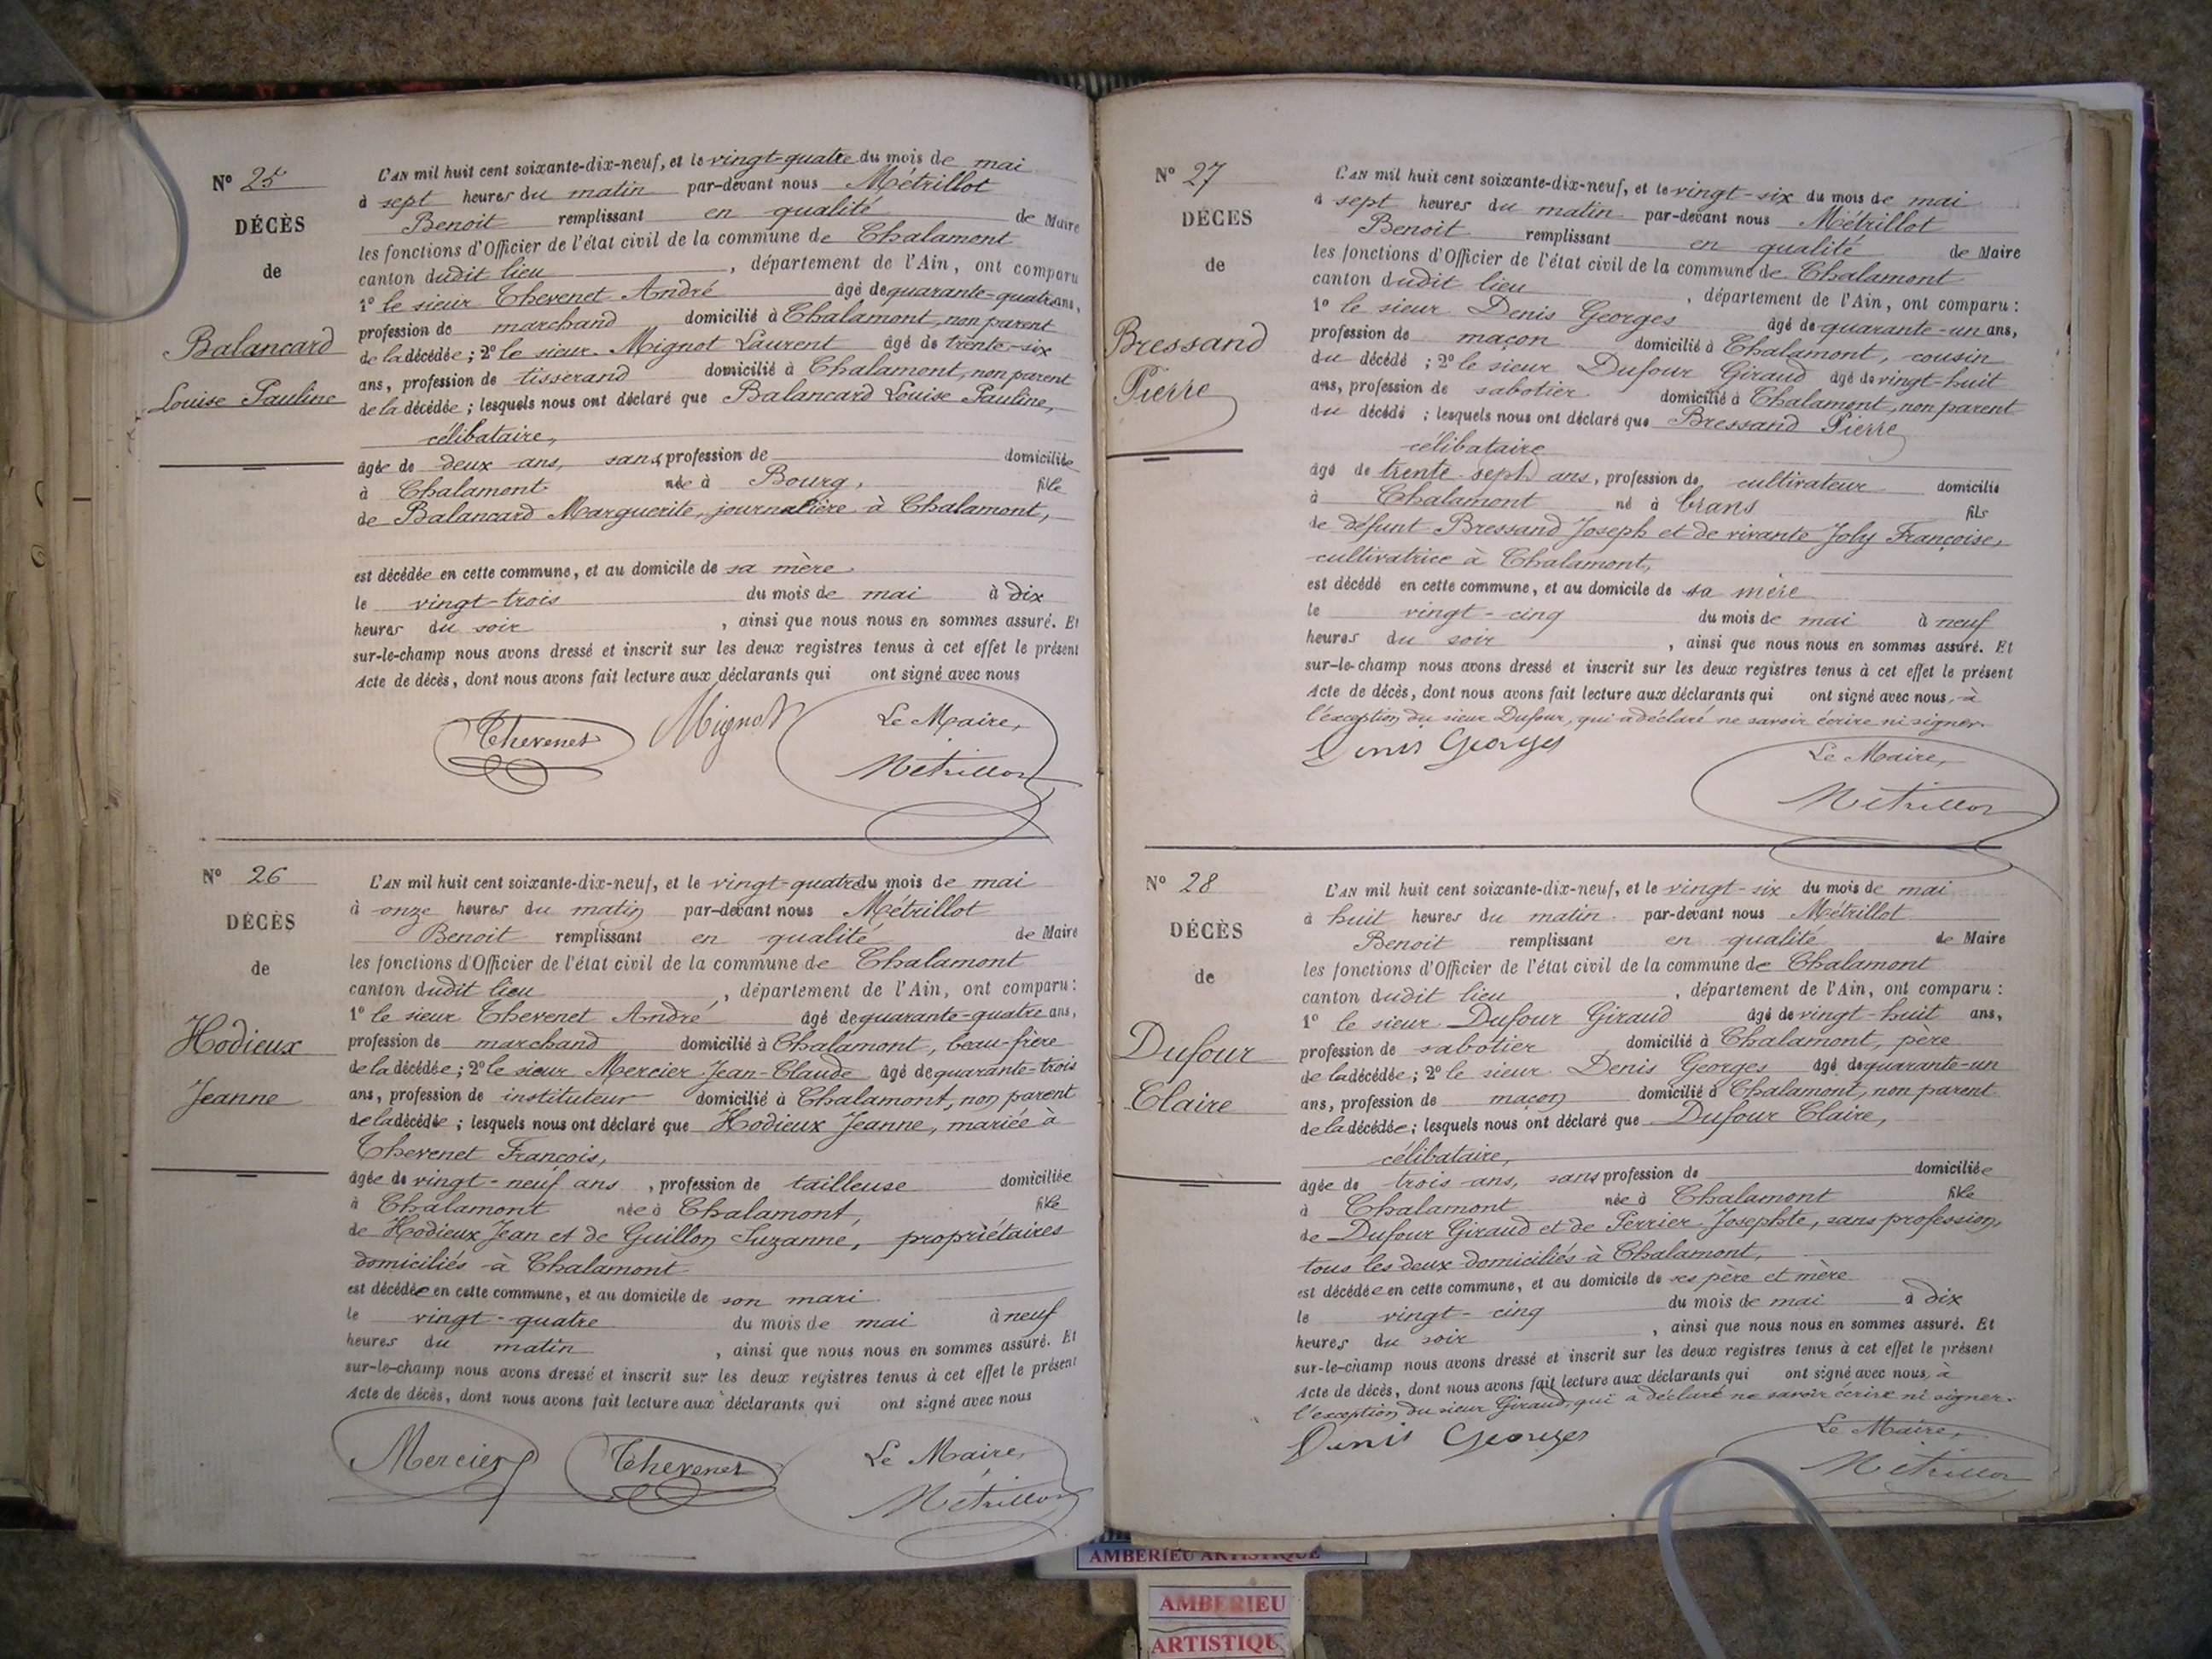 N° 25
DÉCÈS
de
Balancard
Louise Pauline
L'AN mil huit cent soixante-dix-neuf, et le vingt-quatre du mois de mai
à sept heures du matin par-devant nous Métrillot
Benoit remplissant en qualité de Maire
les fonctions d'Officier de l'état civil de la commune de Chalamont
canton dudit lieu , département de l'Ain, ont comparu
1° le sieur Thevenet André âgé de quarante-quatre ans,
profession de marchand domicilié à Chalamont, non parent
de la décédée ; 2° le sieur Mignot Laurent âgé de trente-six
ans, profession de tisserand domicilié à Chalamont, non parent
de la décédée ; lesquels nous ont déclaré que Balancard Louise Pauline,
célibataire,
âgée de deux ans, sans profession de domiciliée
à Chalamont née à Bourg, fille
de Balancard Marguerite, journalière à Chalamont,
est décédée en cette commune, et au domicile de sa mère.
le vingt-trois du mois de mai à dix
heures du soir , ainsi que nous nous en sommes assuré. Et
sur-le-champ nous avons dressé et inscrit sur les deux registres tenus à cet effet le présent
Acte de décès, dont nous avons fait lecture aux déclarants qui ont signé avec nous
Thevenet Mignot Le Maire,
Métrillot
N° 26
DÉCÈS
de
Hodieux
Jeanne
L'AN mil huit cent soixante-dix-neuf, et le vingt-quatre du mois de mai
à onze heures du matin par-devant nous Métrillot
Benoit remplissant en qualité de Maire
les fonctions d'Officier de l'état civil de la commune de Chalamont
canton dudit lieu , département de l'Ain, ont comparu :
1° le sieur Thevenet André âgé de quarante-quatre ans,
profession de marchand domicilié à Chalamont, beau-frère
de la décédée ; 2° le sieur Mercier Jean-Claude âgé de quarante-trois
ans, profession de instituteur domicilié à Chalamont, non parent
de la décédée ; lesquels nous ont déclaré que Hodieux Jeanne, mariée à
Thevenet François,
âgée de vingt-neuf ans , profession de tailleuse domiciliée
à Chalamont née à Chalamont, fille
de Hodieux Jean et de Guillon Suzanne, propriétaires
domiciliés à Chalamont
est décédée en cette commune, et au domicile de son mari
le vingt-quatre du mois de mai à neuf
heures du matin , ainsi que nous nous en sommes assuré. Et
sur-le-champ nous avons dressé et inscrit sur les deux registres tenus à cet effet le présent
Acte de décès, dont nous avons fait lecture aux déclarants qui ont signé avec nous
Mercier Thevenet Le Maire,
Métrillot
N° 27
DÉCÈS
de
Bressand
Pierre
L'AN mil huit cent soixante-dix-neuf, et le vingt-six du mois de mai
à sept heures du matin par-devant nous Métrillot
Benoit remplissant en qualité de Maire
les fonctions d'Officier de l'état civil de la commune de Chalamont
canton dudit lieu , département de l'Ain, ont comparu :
1° le sieur Denis Georges âgé de quarante-un ans,
profession de maçon domicilié à Chalamont, cousin
du décédé ; 2° le sieur Dufour Giraud âgé de vingt-huit
ans, profession de sabotier domicilié à Chalamont, non parent
du décédé ; lesquels nous ont déclaré que Bressand Pierre
célibataire
âgé de trente-sept ans, profession de cultivateur domicilié
à Chalamont né à Crans fils
de défunt Bressand Joseph et de vivante Joly Françoise,
cultivatrice à Chalamont,
est décédé en cette commune, et au domicile de sa mère
le vingt-cinq du mois de mai à neuf
heures du soir , ainsi que nous nous en sommes assuré. Et
sur-le-champ nous avons dressé et inscrit sur les deux registres tenus à cet effet le présent
Acte de décès, dont nous avons fait lecture aux déclarants qui ont signé avec nous, à
l'exception du sieur Dufour, qui a déclaré ne savoir écrire ni signer.
Denis Georges Le Maire,
Métrillot
N° 28
DÉCÈS
de
Dufour
Claire
L'AN mil huit cent soixante-dix-neuf, et le vingt-six du mois de mai
à huit heures du matin par-devant nous Métrillot
Benoit remplissant en qualité de Maire
les fonctions d'Officier de l'état civil de la commune de Chalamont
canton dudit lieu , département de l'Ain, ont comparu :
1° le sieur Dufour Giraud âgé de vingt-huit ans,
profession de sabotier domicilié à Chalamont, père
de la décédée ; 2° le sieur Denis Georges âgé de quarante-un
ans, profession de maçon domicilié à Chalamont, non parent
de la décédée ; lesquels nous ont déclaré que Dufour Claire,
célibataire,
âgée de trois ans, sans profession de domiciliée
à Chalamont née à Chalamont fille
de Dufour Giraud et de Perrier Josephte, sans profession,
tous les deux domiciliés à Chalamont,
est décédée en cette commune, et au domicile de ses père et mère
le vingt-cinq du mois de mai à dix
heures du soir , ainsi que nous nous en sommes assuré. Et
sur-le-champ nous avons dressé et inscrit sur les deux registres tenus à cet effet le présent
Acte de décès, dont nous avons fait lecture aux déclarants qui ont signé avec nous, à
l'exception du sieur Giraud, qui a déclaré ne savoir écrire ni signer.
Denis Georges Le Maire,
Métrillot
AMBERIEU ARTISTIQUE
AMBERIEU
ARTISTIQU